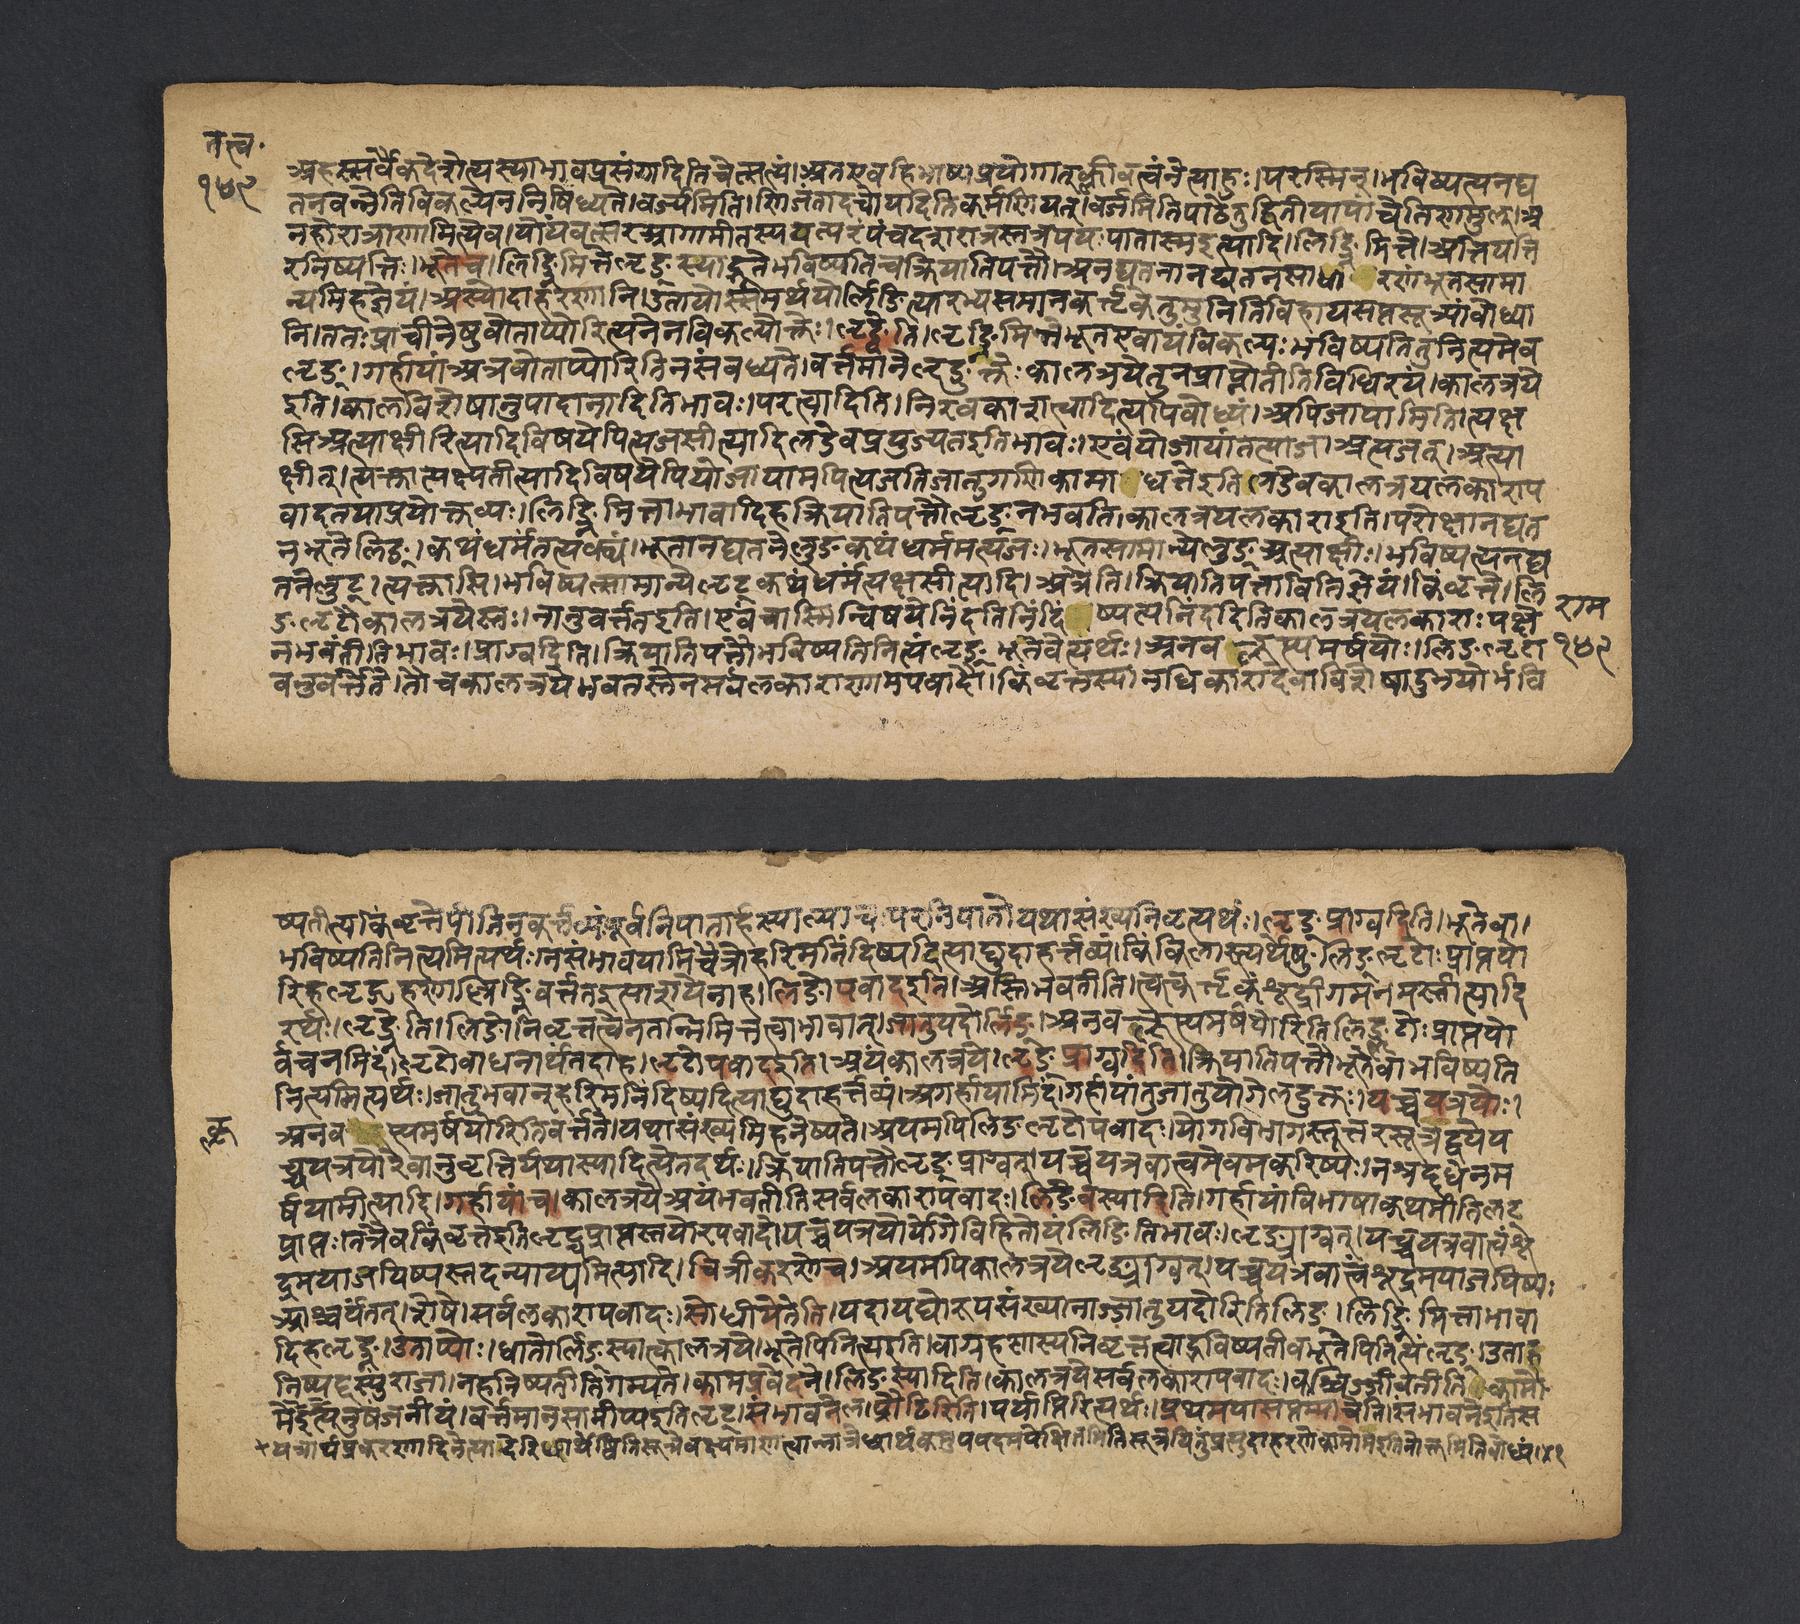 तत्व॰
१५९
अहस्सर्वैकदेशेत्यस्याभावप्रसंगादितिचेत्सत्यं।अतएवहिभाष्यप्रयोगात्क्लीबत्वंनेत्याहुः।परस्मिन्।भविष्यत्यनद्य
तनवन्नेतिविकल्पेननिषिध्यते।वर्ज्यमिति।णिजंतादचोयदितिकर्मणियत्।वर्जमितिपाठेतुद्वितीयायांचेतिणमुल्।अ
नहोरात्राणामित्येव।योयंवत्सरआगामीतस्ययत्परंपंचदशरात्रस्तत्रपयःपातास्मइत्यादि।लिङ्निमित्ते।अतिपत्ति
रनिष्पत्तिः।भूतेच।लिङ्निमित्तेऌङ्स्याद्भूतेभविष्यतिचक्रियातिपत्तौ।अनद्यतनानद्यतनसाधारणंभूतसामा
न्यमिहज्ञेयं।अस्योदाहरणानि।उताप्योस्समर्थयोर्लिङित्यारभ्यसमानकर्त्तृकेतुमुनितिविहायसप्तसूत्र्यांबोध्या
नि।ततःप्राचीनेषुवोताप्योरित्यनेनविकल्पोक्तेः।ऌङ्वेति।ऌङ्निमित्तेभूतएवायंविकल्पःभविष्यतितुनित्यमेव
ऌङ्।गर्हायांअत्रवोताप्योरितिनसंबध्यते।वर्त्तमानेलडुक्तःकालत्रयेतुनप्राप्नोतीतिविधिरयं।कालत्रये
इति।कालविशेषानुपादानादितिभावः।परत्वादिति।निरवकाशत्वादित्यपिबोध्यं।अपिजायामिति।त्यक्ष
सिअत्याक्षीरित्यादिविषयेपित्यजसीत्यादिलडेवप्रयुज्यतइतिभावः।एवंयोजायांतत्याज।अत्यजत्।अत्या
क्षीत्।त्यक्तात्यक्ष्यतीत्यादिविषयेपियोजायामपित्यजतिजातुगणिकामाधत्तेइतिलडेवकालत्रयलकाराप
वादतयाप्रयोक्तव्यः।लिङ्निमित्ताभावादिहक्रियातिपत्तौऌङ्नभवति।कालत्रयलकाराइति।परोक्षानद्यत
नभूतेलिट्।कथंधर्मंतत्यक्थ्यं।भूतानद्यतनेलुङ्कथंधर्ममत्यजः।भूतसामान्येलुङ्अत्याक्षीः।भविष्यत्यनद्य
तनेलुट्।त्यक्तासि।भविष्यत्सामान्येऌट्कथंधर्मंत्यक्षसीत्यादि।अत्रेति।क्रियातिपत्तावितिज्ञेयं।किंवृत्ते।लि
ङ्ऌटौकालत्रयेस्तः।नानुवर्त्ततइति।एवंचास्मिन्विषयेनिंदतिनिंदिष्यत्यनिंददितिकालत्रयलकाराःपक्षे
नभवंतीतिभावः।प्राग्वदिति।क्रियातिपत्तौभविष्यतिनित्यंऌङ्भूतेवेत्यर्थः।अनवक्लृप्त्यमर्षयोः।लिङ्ऌटा
वनुवर्त्तेते।तौचकालत्रयेभवतस्तेनसर्वलकाराणामपवादौ।किंवृत्तस्यानधिकारादेवाविशेषादुभयोर्भवि
राम
१५९
ष्यतीत्यकिंवृत्तेपीतिनवक्तव्यंपूर्वनिपातार्हस्याल्पाचःपरनिपातोयथासंख्यनिवृत्त्यर्थः।ऌङ्प्राग्वदिति।भूतेवा।
भविष्यतिनित्यमित्यर्थः।नसंभावयामिचैत्रोहरिमनिंदिष्यदित्याद्युदाहर्त्तव्यं।किंकिलास्त्यर्थेषु।लिङ्ऌटोःप्राप्तयो
रिहऌड्ग्रहणंलिङ्निवर्त्ततइत्याशयेनाह।लिङोपवादइति।अस्तिभवतीति।त्वत्कर्त्तृकंशूद्रीगमनमस्तीत्यादि
रर्थः।ऌङ्नेति।लिङोनिवृत्तत्वेनतन्निमित्तत्वाभावात्।जातुयदोर्लिङ्।अनवक्लृप्त्यमर्षयोरितिलिङ्ऌटोःप्राप्तयो
र्वचनमिदं।ऌटोबाधनार्थंतदाह।ऌटोपवादइति।अयंकालत्रये।ऌङ्प्राग्वदिति।क्रियातिपत्तौभूतेवाभविष्यति
नित्यमित्यर्थः।जातुभवान्हरिमनिंदिष्यदित्याद्युदाहर्त्तव्यं।अगर्हायामिदं।गर्हायांतुजातुयोगेलडुक्तः।यच्चयत्रयोः।
अनवक्लृप्त्यमर्षयोरितिवर्त्तते।यथासंख्यमिहनेष्यते।अयमपिलिङ्ऌटोपवादः।योगविभागस्तूत्तरसूत्रेद्वयेय
च्चयत्रयोरेवानुवृत्तिर्यथास्यादित्येतदर्थः।क्रियातिपत्तौऌङ्प्राग्वत्।यच्चयत्रवात्वमेवमकरिष्यः।नश्रद्दधेनम
र्षयामीत्यादि।गर्हायांच।कालत्रयेअयंभवतीतिसर्वलकारापवादः।लिङेवस्यादिति।गर्हायांविभाषाकथमीतिलट्
प्राप्तः।तत्रैवकिंवृत्तइतिऌट्चप्राप्तस्तयोरपवादोयच्चयत्रयोर्योगेविहितोयंलिङितिभावः।ऌङ्प्राग्वत्।यच्चयत्रवात्वंशू
द्रमयाजयिष्यस्तदन्याय्यमित्यादि।चित्रीकरणेच।अयमपिकालत्रयेऌङ्प्राग्वत्।यच्चयत्रवात्वंशूद्रमयाजयिष्यः
आश्चर्यंतत्।शेषे।सर्वलकारापवादः।सोधीयेतेति।यदायद्योरुपसंख्यानाज्जातुयदोरितिलिङ्।लिङ्निमित्ताभावा
दिहऌङ्न।उताप्योः।धातोर्लिङ्स्यात्कालत्रये।भूतेपिनित्यइति।वाग्रहणास्यनिवृत्तत्वाद्भविष्यतीवभूतेपिनित्यंऌङ्।उताह
निष्यद्दस्युंराजा।नहनिष्यतीतिगम्यते।कामप्रवेदने।लिङ्स्यादिति।कालत्रयेसर्वलकारापवादः।कच्चिज्जीवतीति।कामो
मेइत्यनुषंजनीयं।वर्त्तमानसामीप्यइतिऌट्।संभावनेल।प्रौढिरिति।पर्याप्तिरित्यर्थः।प्रथमयासप्तम्याचेति।संभावनेइतिस
क्लृ